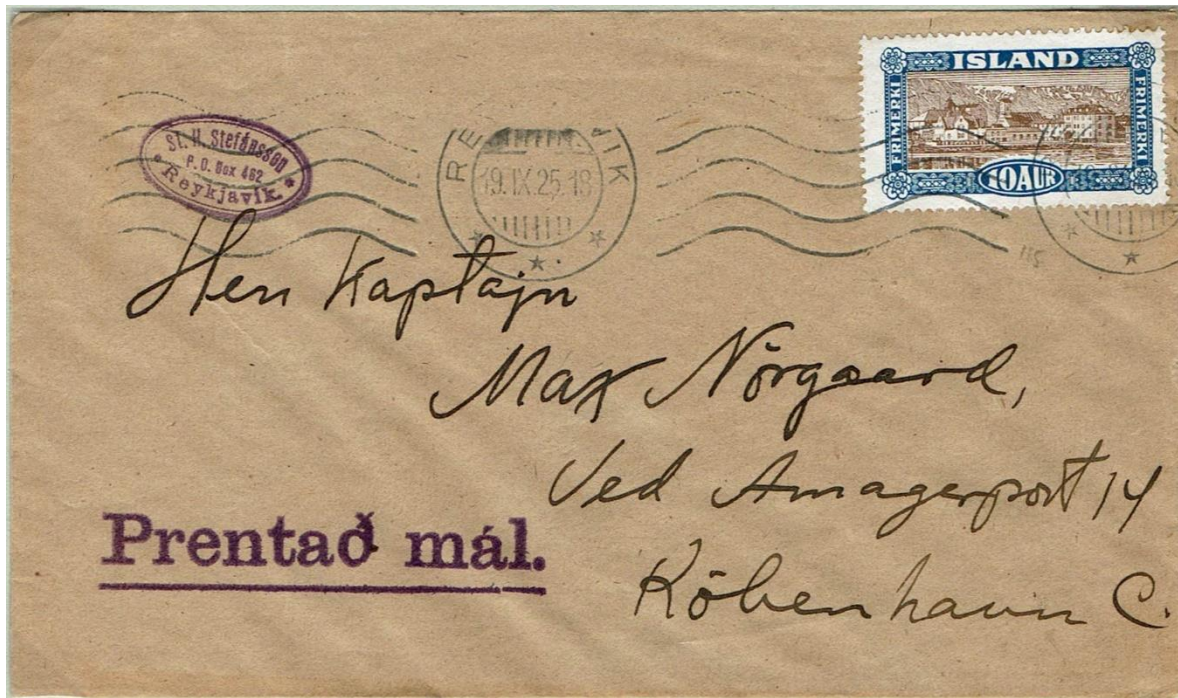 St. H. Stefánsson
P.O. Box 462
Reykjavík.
19.IX.25.18
ÍSLAND
FRÍMERKI
FRÍMERKI
10 AUR
Herr Kaptajn
Max Nörgaard,
Ved Amagerport 14
Köbenhavn C.
Prentað mál.